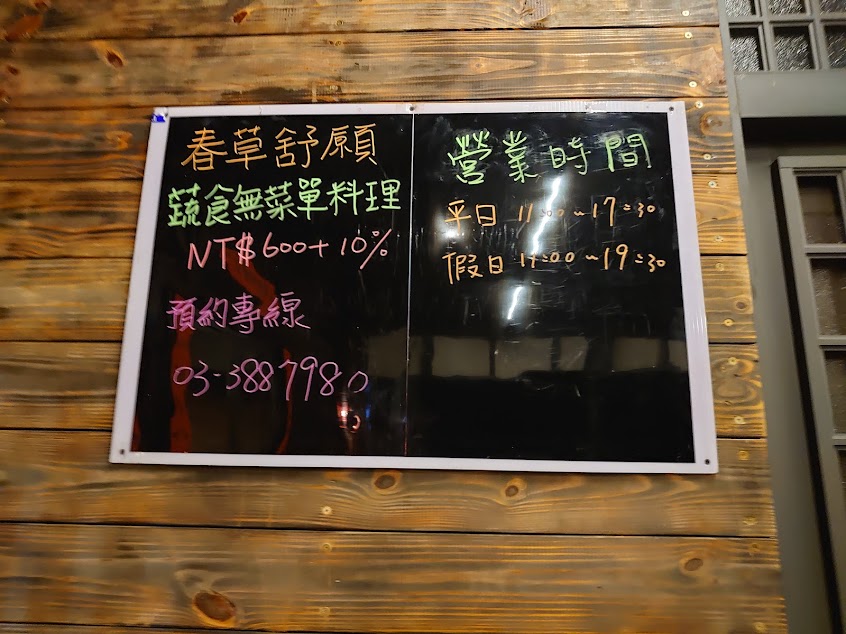 春草舒願
蔬食無菜單料理
NT$600+10%
預約專線
03-3887980
營業時間
平日 11:00~17:30
假日 11:00~19:30